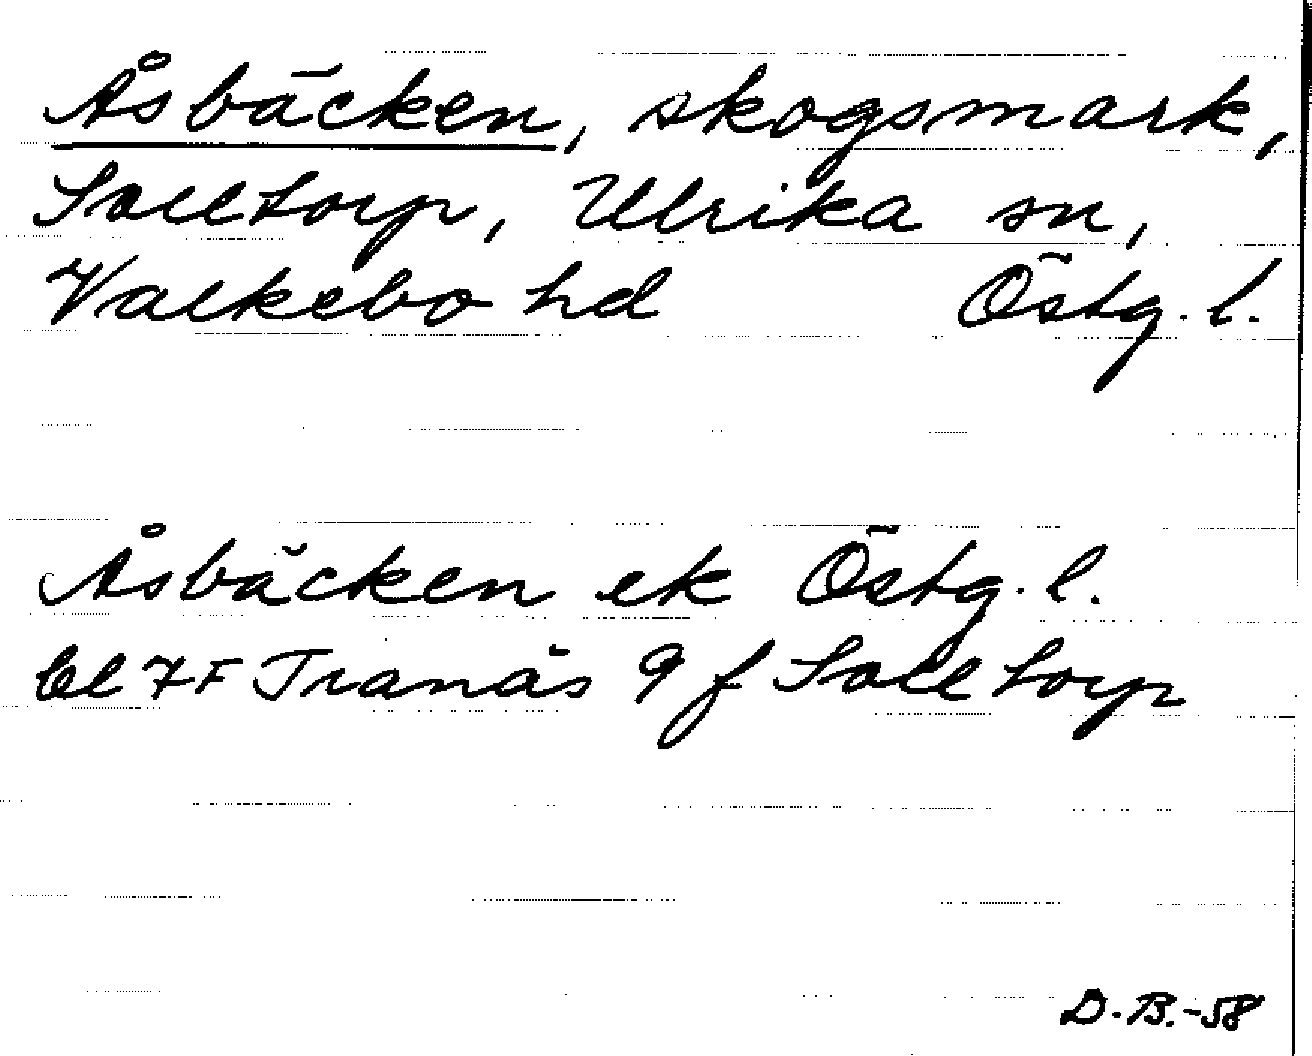 Åsbäcken, skogsmark,
Solltorp, Ulrika sn,
Valkebo hd Östg. l.
Åsbäcken ek Östg. l.
bl 7F Tranås 9 f Solltorp
D.B.-58